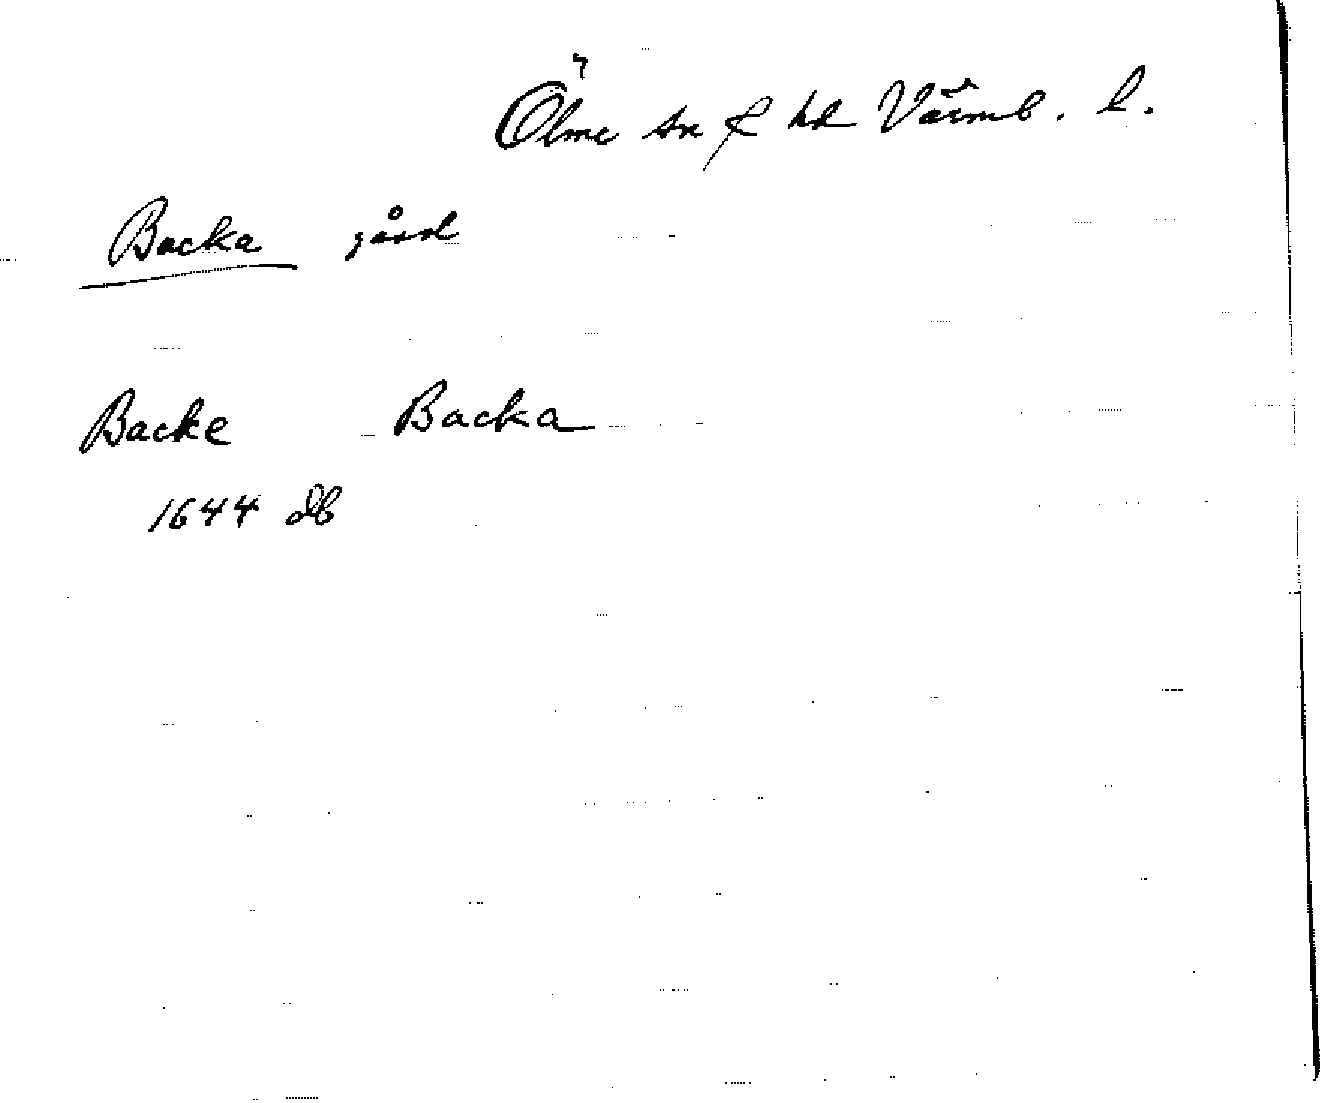 Ölme sn & hd Värml. l.
Backa gård
Backe Backa
1644 db